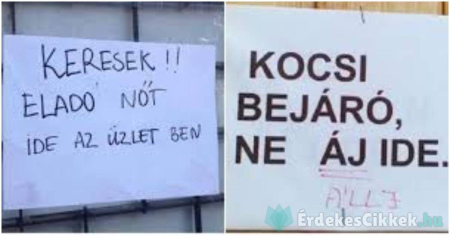 KERESEK!!
ELADÓ NŐT
IDE AZ ÜZLET BEN
KOCSI
BEJÁRÓ,
NE ÁJ IDE.
ÁLLJ
ÉrdekesCikkek.hu